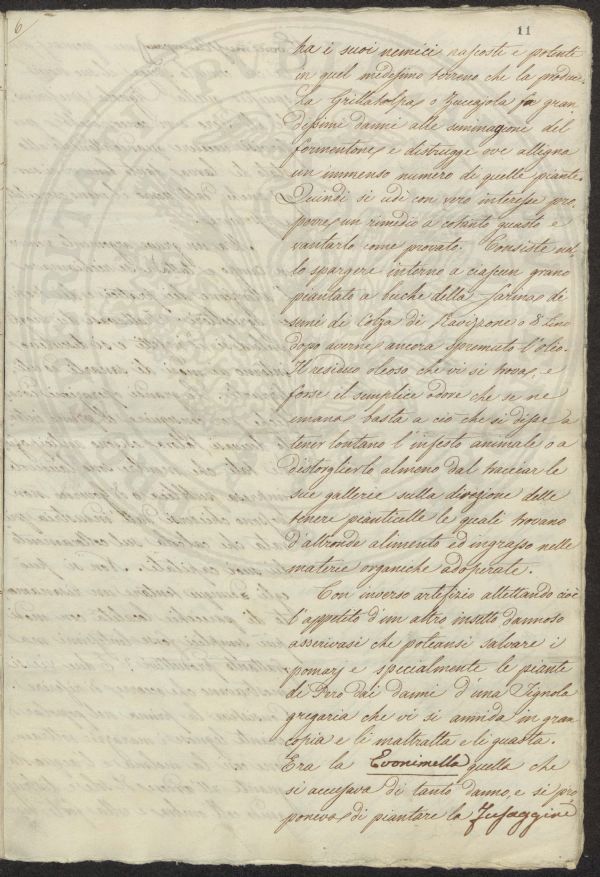 6
11
ha i suoi nemici nascosti e potenti
in quel medesimo terreno che la produce
La Grillatolpa, o Zuccajola fa gran
dissimi danni alle seminagione del
formentone, e distrugge ove alligna
un immenso numero di quelle piante.
Quindi si udì con vero interesse pro
porre, un rimedio a cotanto guasto e
vantarlo come provato. Consiste nel
lo spargere intorno a ciascun grano
piantato a buche della farina, di
semi di Colza di Ravizzone o di Lino
dopo averne, ancora spremuto l'olio.
Il residuo oleoso che vi si trova, e
forse il semplice odore che se ne
emana, basta a ciò che si disse a
tener lontano l'infesto animale o a
distorglierlo almeno dal tracciar le
sue gallerie sulla direzione delle
tenere pianticelle le quali trovano
d'altronde alimento ed ingrasso nelle
materie organiche adoperate.
Con inverso artifizio allettando cioè
l'appetito d'un altro insetto dannoso
asserivasi che poteansi salvare i
pomarj e specialmente le piante
di Pero dai danni d'una Tignola
gregaria che vi si annida in gran
copia e li maltratta e li guasta.
Era la Evonimella quella che
si accusava di tanto danno, e si pro
poneva, di piantare la Fusaggine